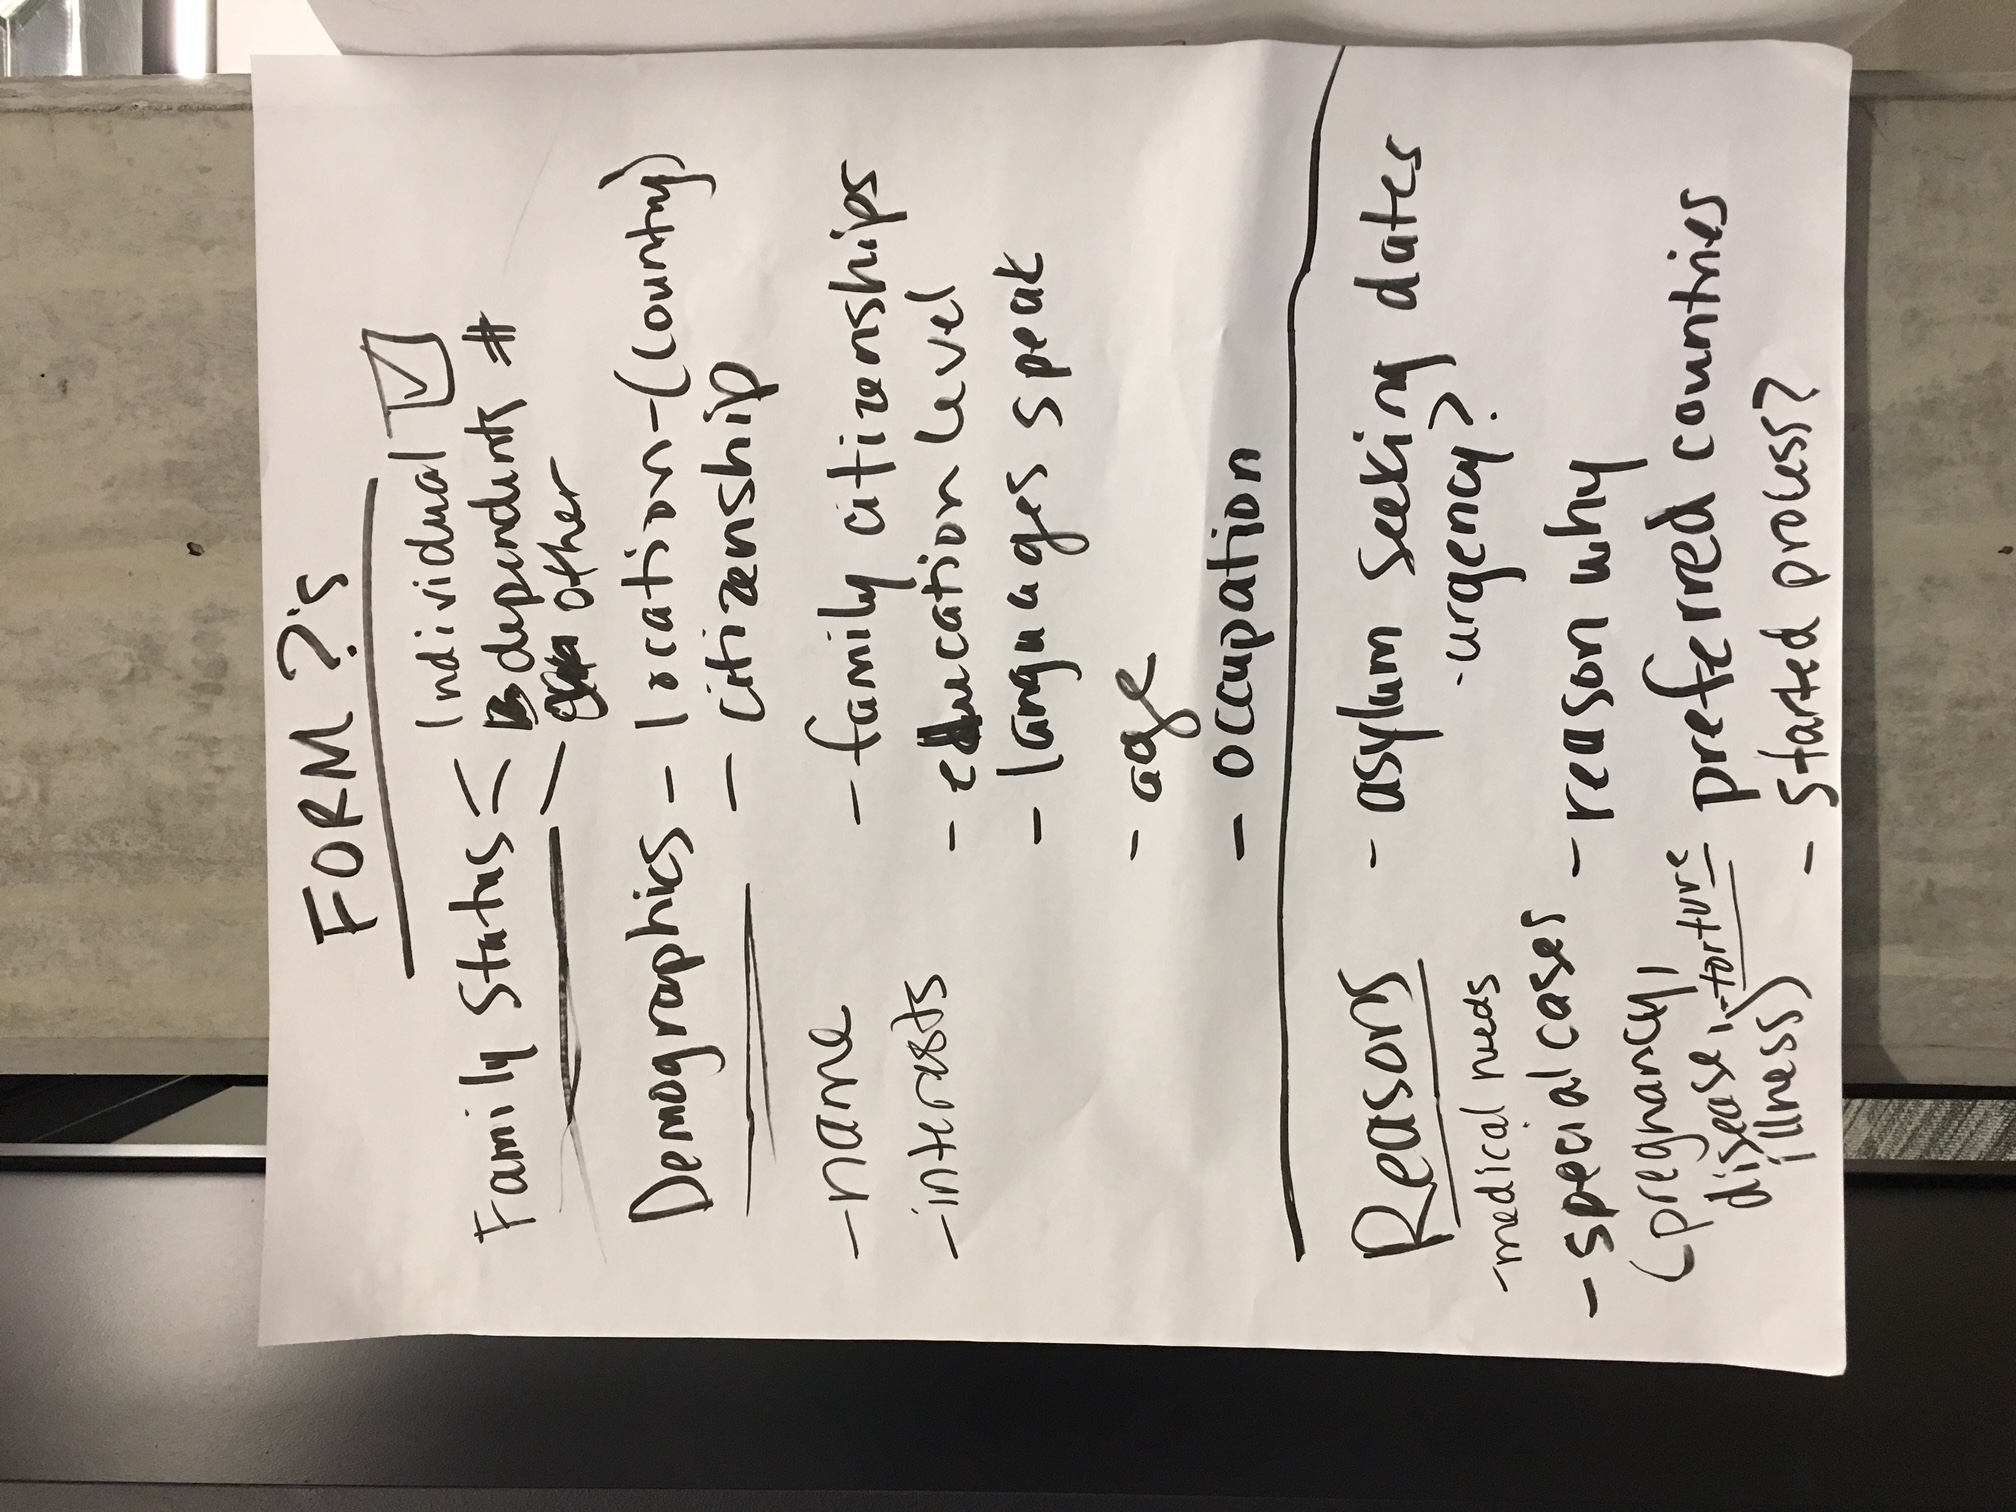 FORM ?'s
Family Status
Individual
dependents #
other
Demographics - location - (country)
- citizenship
- name
- interests
- family citizenships
- education level
- languages speak
- age
- occupation
Reasons
- medical needs
- special cases
(pregnancy,
disease, - torture
illness)
- asylum seeking dates
- urgency?
- reason why
preferred countries
- started process?